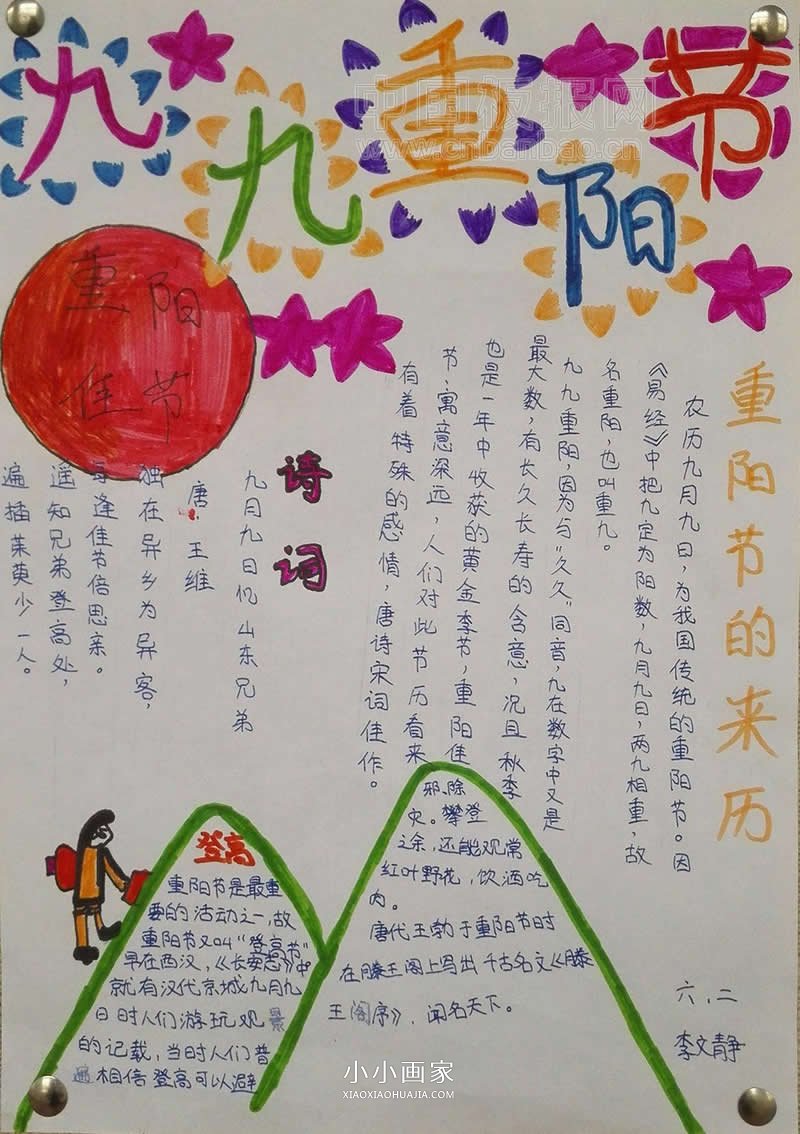 九九重阳节
中国板报网
重阳
佳节
重阳节的来历
农历九月九日，为我国传统的重阳节。因
《易经》中把九定为阳数，九月九日，两九相重，故
名重阳，也叫重九。
九九重阳，因为与“久久”同音，九在数字中又是
最大数，有长久长寿的含意，况且秋季
也是一年中收获的黄金季节，重阳佳
节，寓意深远，人们对此节历看来
有着特殊的感情，唐诗宋词佳作。
诗词
九月九日忆山东兄弟
唐·王维
独在异乡为异客，
每逢佳节倍思亲。
遥知兄弟登高处，
遍插茱萸少一人。
登高
重阳节是最重
要的活动之一，故
重阳节又叫“登高节”
早在西汉，《长安志》中
就有汉代京城九月九
日时人们游玩观景
的记载，当时人们普
遍相信登高可以避
邪、除
灾。攀登
之余，还能观常
红叶野花，饮酒吃
肉。
唐代王勃于重阳节时
在滕王阁上写出千古名文《滕
王阁序》，闻名天下。
六、二
李文静
小小画家
XIAOXIAOHUAJIA.COM